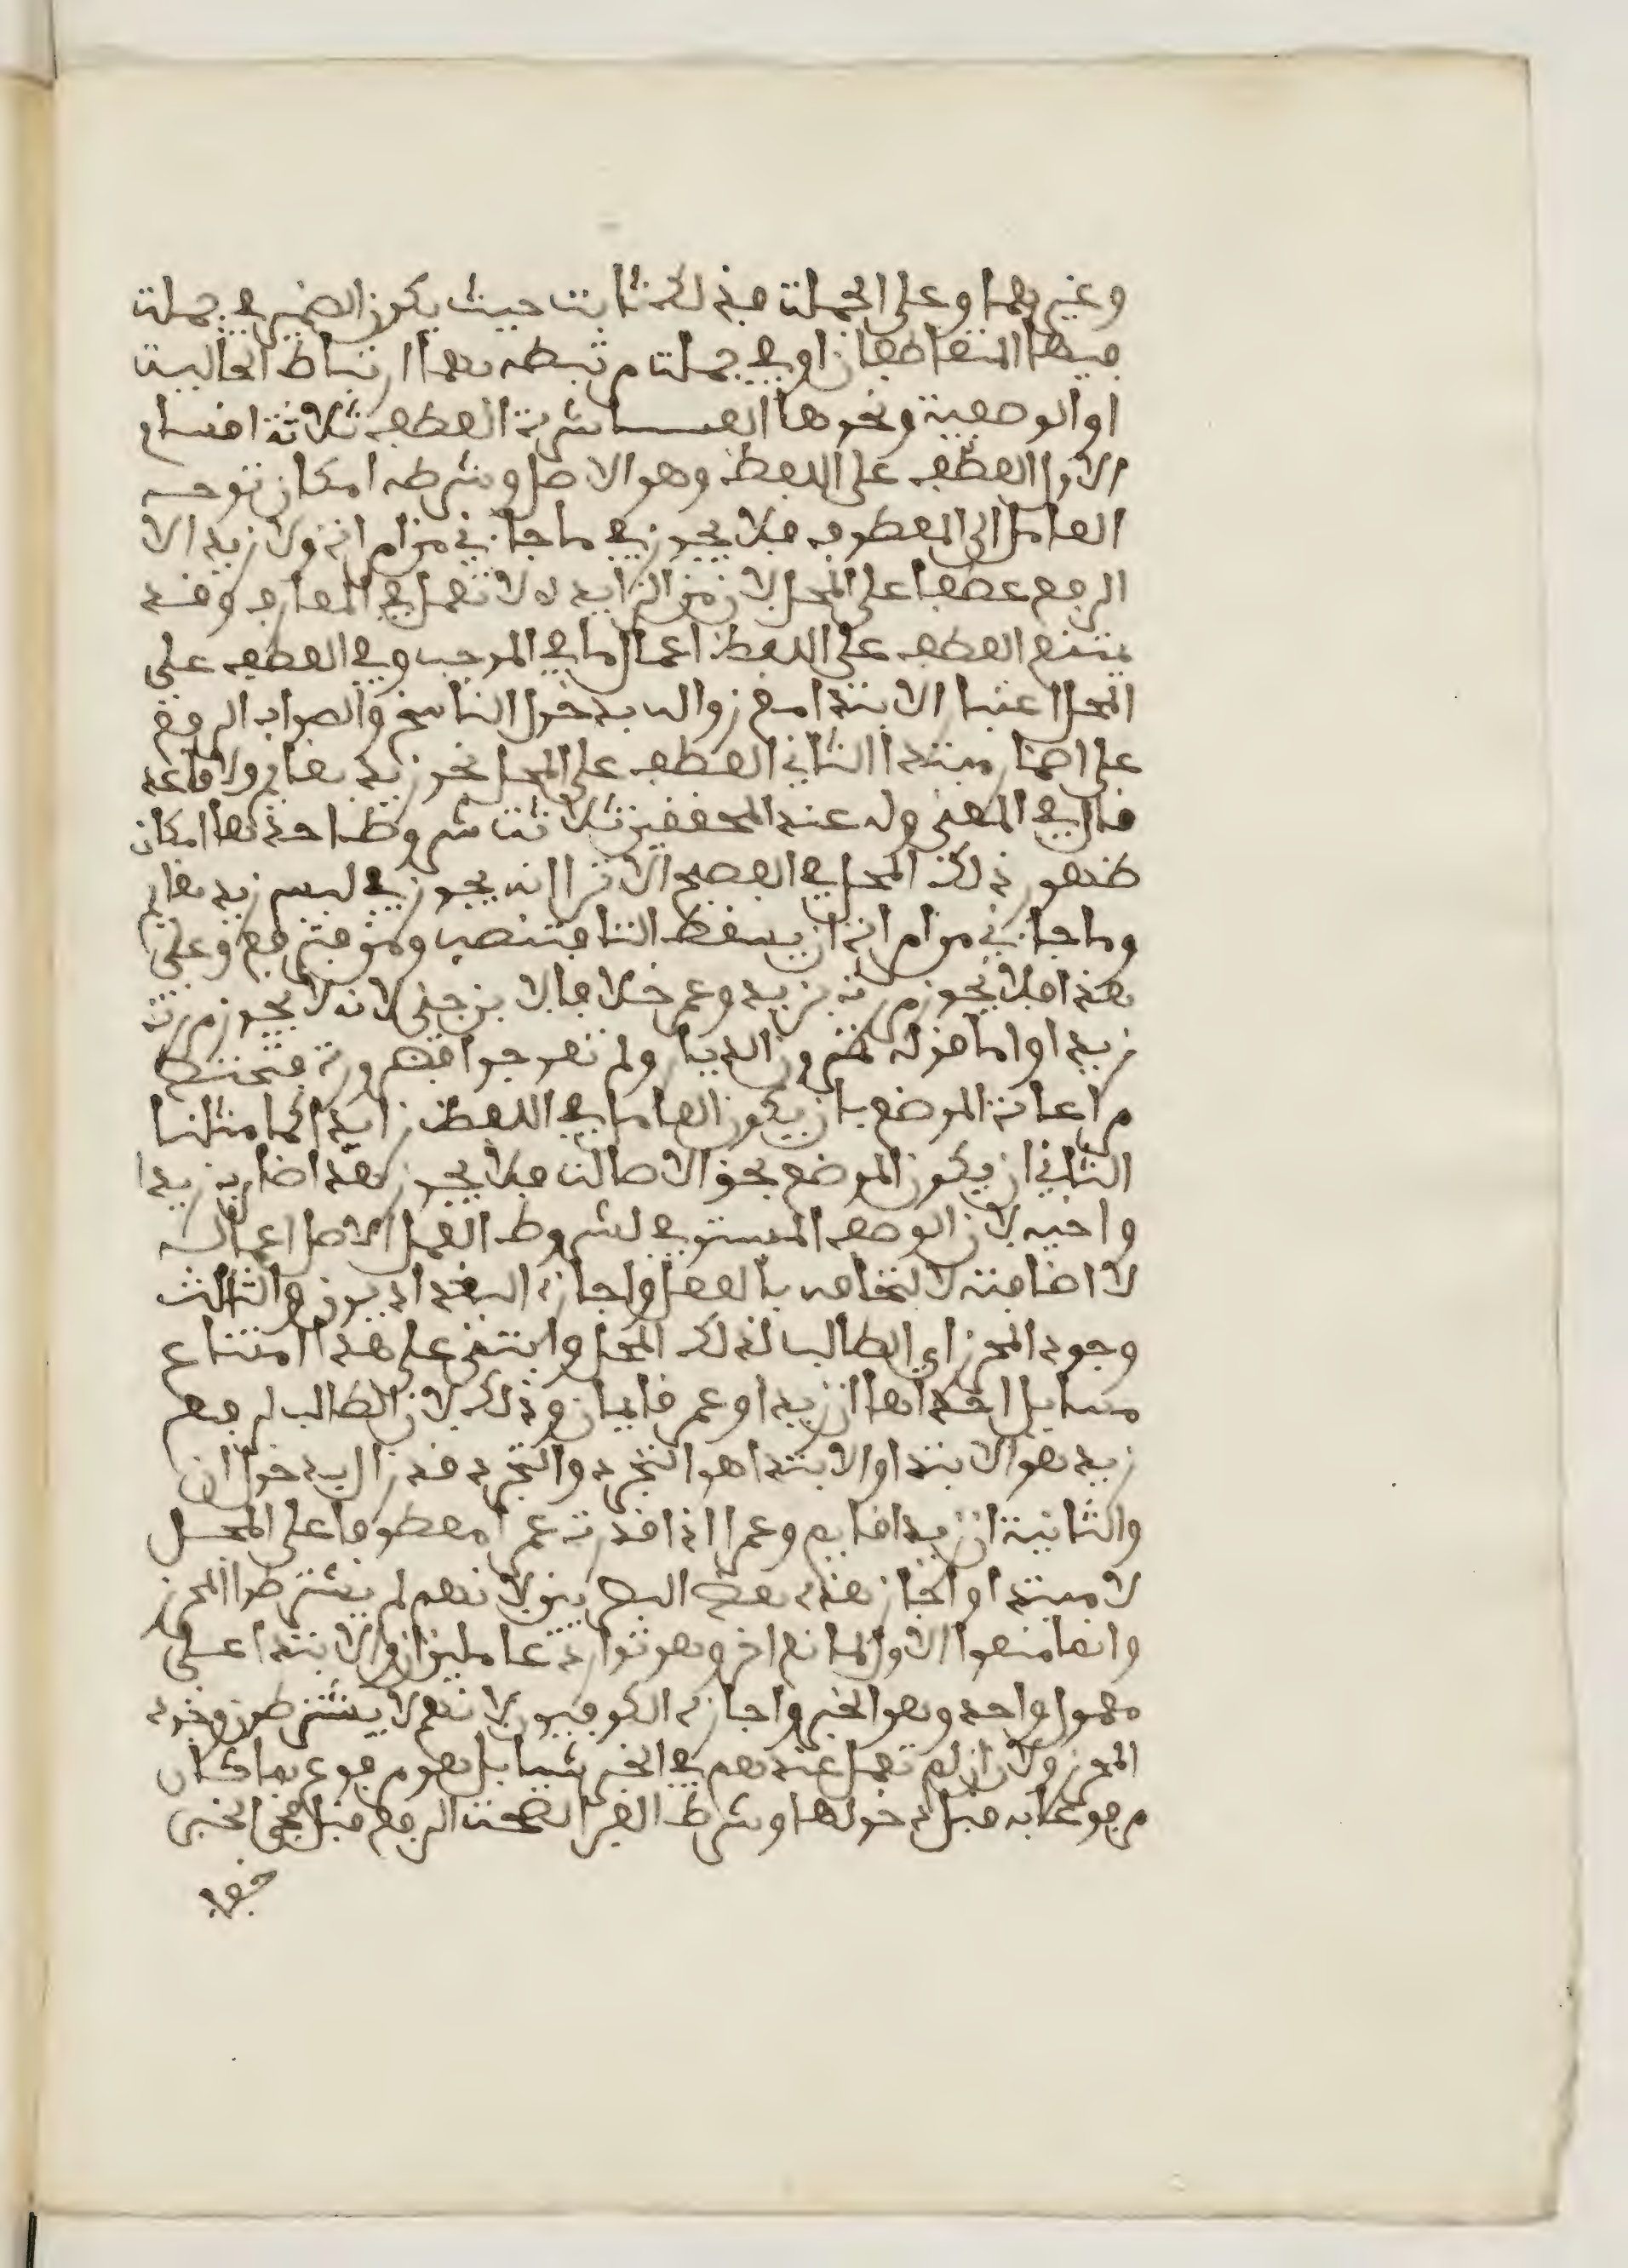 وغيرهما وعلى الجملة فذلك ثابت حيث يكون الضمير في جملة
فيها المتعاطفان او في جملة مرتبطة بهما ارتباط الحالية
او الوصفية ونحوها العاشرة العطف ثلاثة اقسام
الاول العطف على اللفظ وهو الاصل وشرطه امكان توجه
العامل الى المعطوف فلا يجوز في ما جاءني من امراة ولا زيد الا
الرفع عطفا على المحل لان من الزايدة لا تعمل في المعارف وقد
يمتنع العطف على اللفظ اعمال ما في الموجب وفي العطف على
المحل اعتبار الابتدا مع زواله بدخول الناسخ والصواب الرفع
على اضمار مبتدا الثاني العطف على المحل نحو ليس زيد بقايم ولا قاعدا
قال في المغني وله عند المحققين ثلاثة شروط احدها امكان
ظهور ذلك المحل في الفصيح الا ترا انه يجوز في ليس زيد بقايم
وما جاءني من امراة ان يسقط البا فتنصب ومن فترفع وعلى
هذا فلا يجوز مررت بزيد وعمرا خلافا لابن جني لانه لا يجوز مررت
زيدا واما قوله تمرون الديار ولم تعوجوا فضرورة فتختص
مراعاة الموضع بان يكون العامل في اللفظ زايدا كما مثلنا
الثاني ان يكون الموضع بحق الاصالة فلا يجوز هذا ضارب زيدا
واخيه لان الوصف المستوفي لشروط العمل الاصل اعماله
لا اضافته لالتحاقه بالفعل واجازه البغداديون والثالث
وجود المحرز اي الطالب لذلك المحل وابتنى على هذا امتناع
مسايل احداها ان زيدا وعمر قايمان وذلك لان الطالب لرفع
زيد هو الابتدا والابتدا هو التجرد والتجرد قد زال بدخول ان
والثانية ان زيدا قايم وعمرا اذا قدرت عمرا معطوفا على المحل
لا مبتدا واجاز هذه بعض البصريين لانهم لم يشترطوا المحرز
وانما منعوا الاولى لمانع اخر وهو توارد عاملين ان والابتدا على
معمول واحد وهو الخبر واجازه الكوفيون لانهم لا يشترطون وجود
المحرز ولان ان لم تعمل عندهم في الخبر شيا بل هو مرفوع بما كان
مرفوعا به قبل دخولها وشرط الفرا لصحة الرفع قبل مجي الخبر
خفا